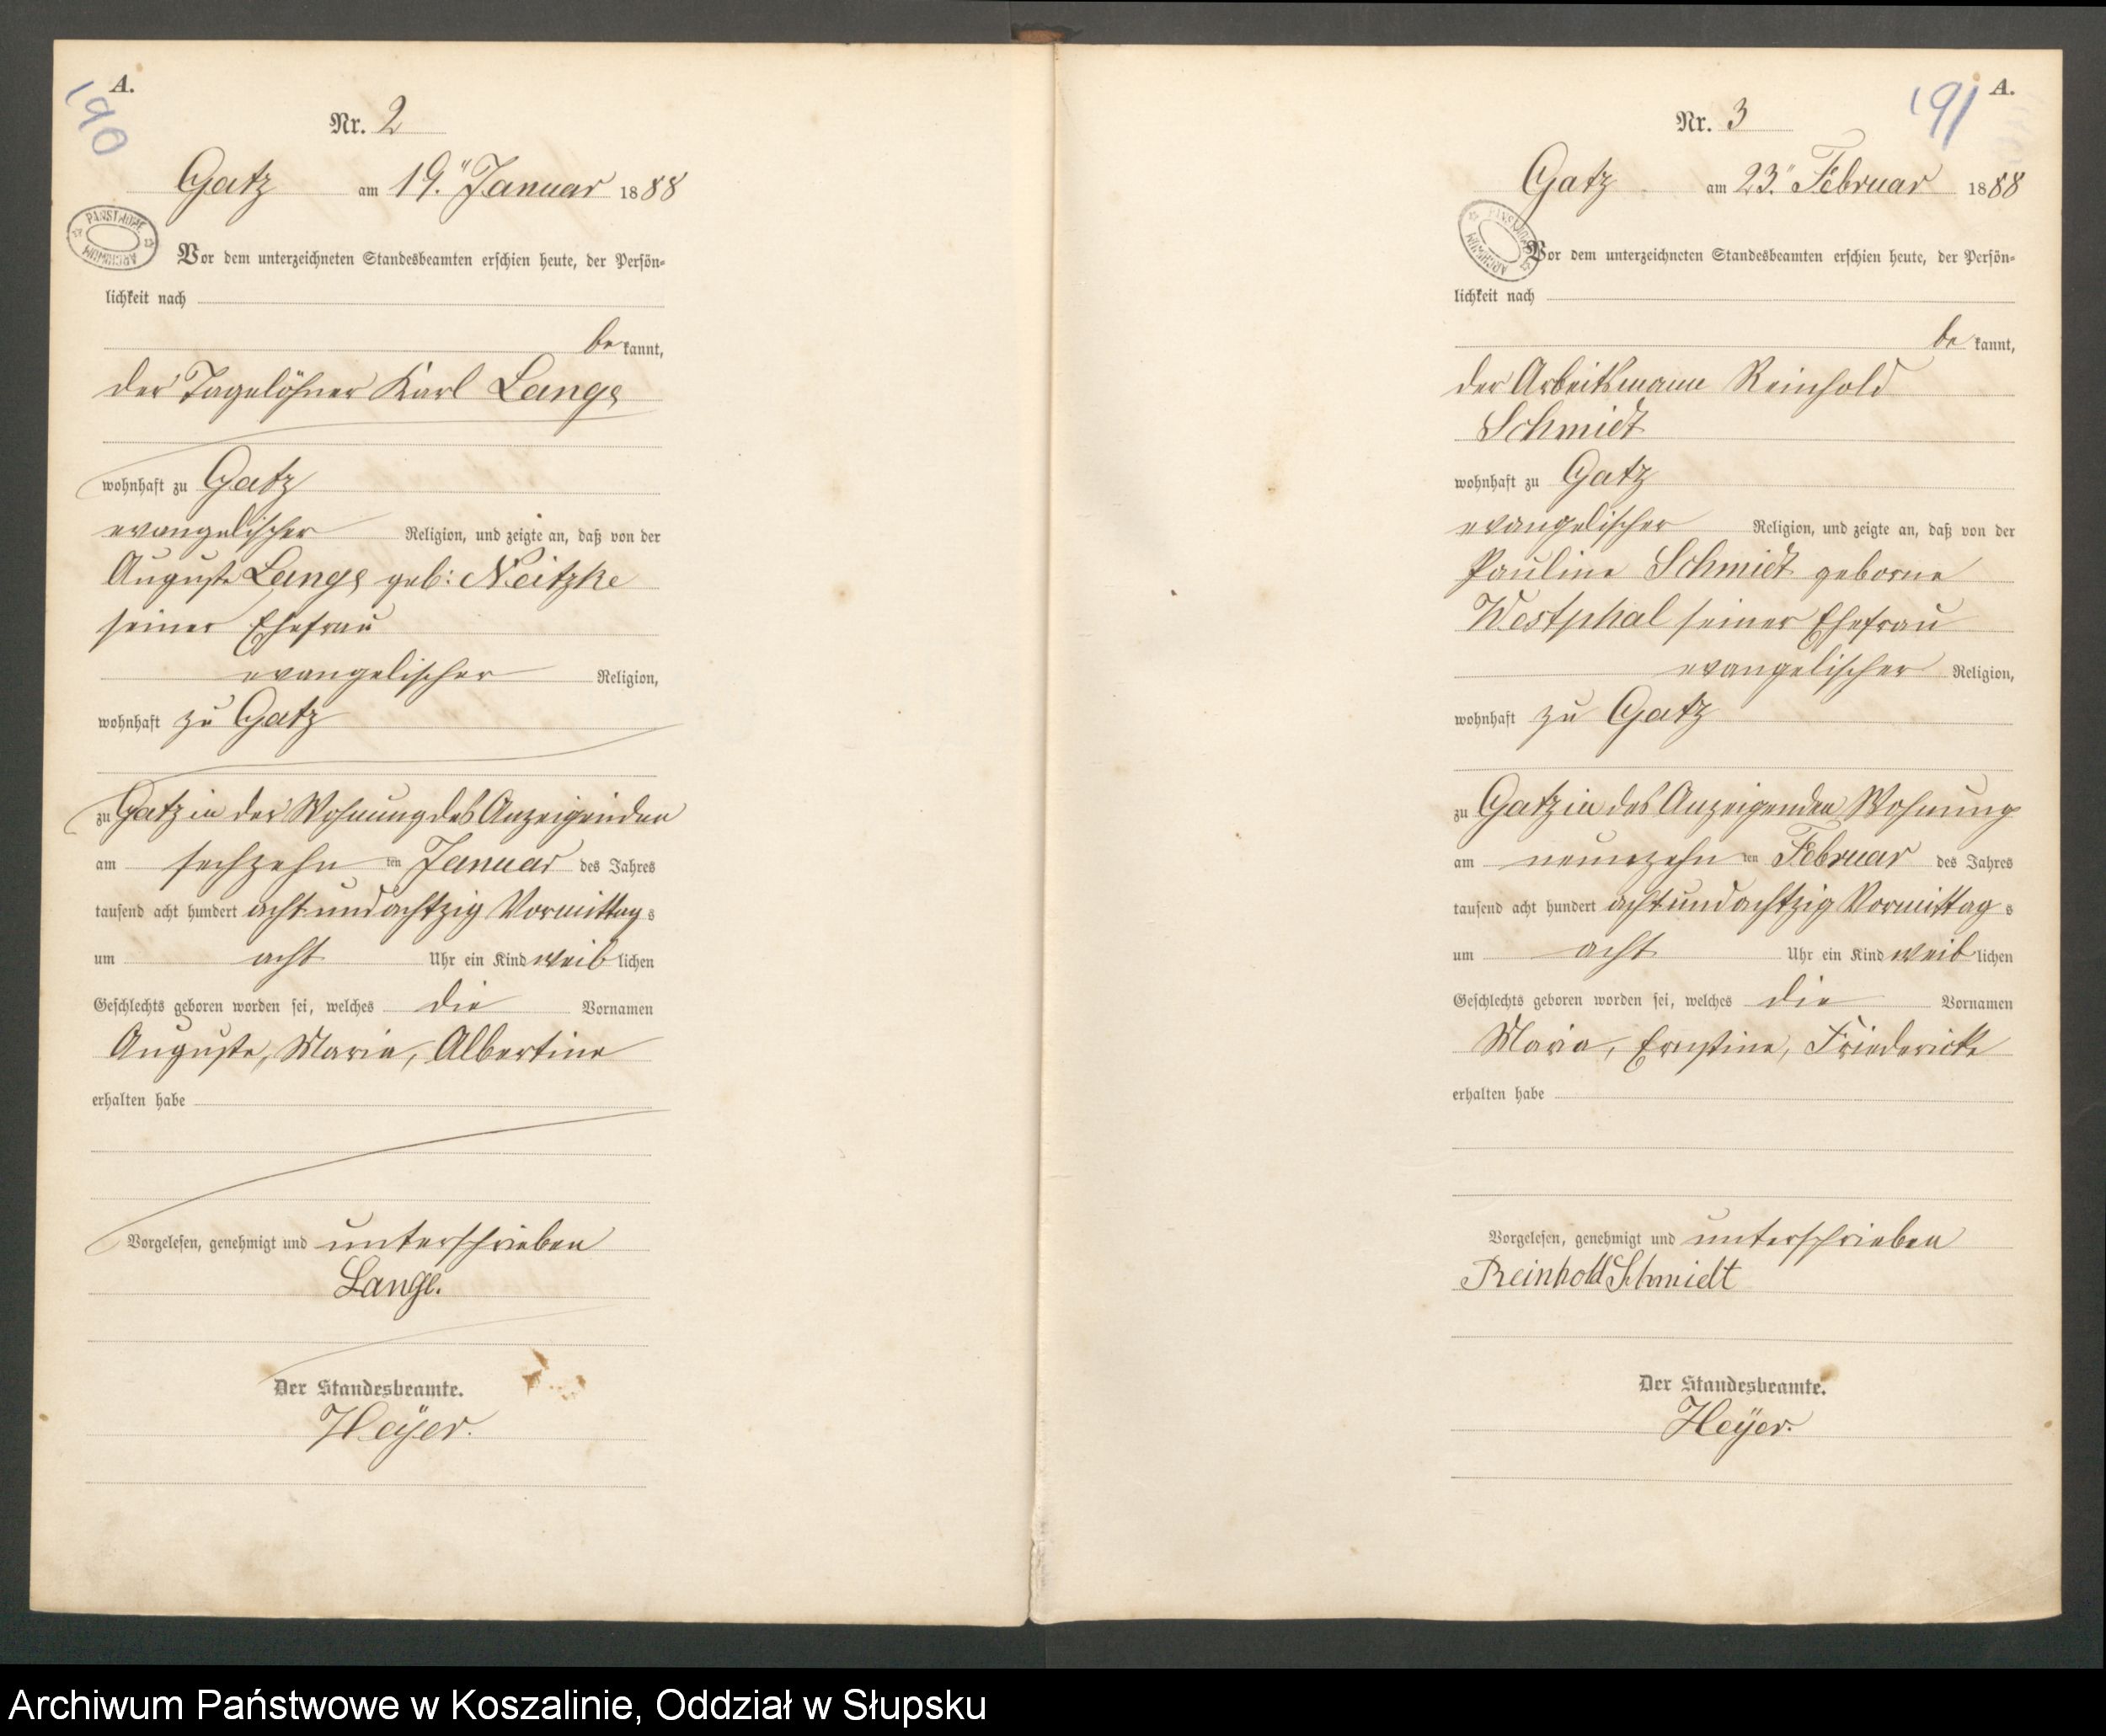 A.
190
Nr. 2
Gatz am 19.ten Januar 1888
PAŃSTWOWE ARCHIWUM
Vor dem unterzeichneten Standesbeamten erschien heute, der Persön-
lichkeit nach
be kannt,
der Tagelöhner Karl Lange
wohnhaft zu Gatz
evangelischer Religion, und zeigte an, daß von der
Auguste Lange geb: Neitzke
seiner Ehefrau
evangelischer Religion,
wohnhaft zu Gatz
zu Gatz in der Wohnung des Anzeigenden
am sechzehn ten Januar des Jahres
tausend acht hundert acht und achtzig Vormittag s
um acht Uhr ein Kind weib lichen
Geschlechts geboren worden sei, welches die Vornamen
Auguste, Marie, Albertine
erhalten habe
Vorgelesen, genehmigt und unterschrieben
Lange.
Der Standesbeamte.
Heÿer.
A.
191
Nr. 3
Gatz am 23.ten Februar 1888
PAŃSTWOWE ARCHIWUM
Vor dem unterzeichneten Standesbeamten erschien heute, der Persön-
lichkeit nach
be kannt,
der Arbeitsmann Reinhold
Schmidt
wohnhaft zu Gatz
evangelischer Religion, und zeigte an, daß von der
Pauline Schmidt geborne
Westphal seiner Ehefrau
evangelischer Religion,
wohnhaft zu Gatz
zu Gatz in des Anzeigenden Wohnung
am neunzehn ten Februar des Jahres
tausend acht hundert acht und achtzig Vormittag s
um acht Uhr ein Kind weib lichen
Geschlechts geboren worden sei, welches die Vornamen
Maria, Ernstine, Friedericke
erhalten habe
Vorgelesen, genehmigt und unterschrieben
Reinhold Schmidt
Der Standesbeamte.
Heÿer.
Archiwum Państwowe w Koszalinie, Oddział w Słupsku